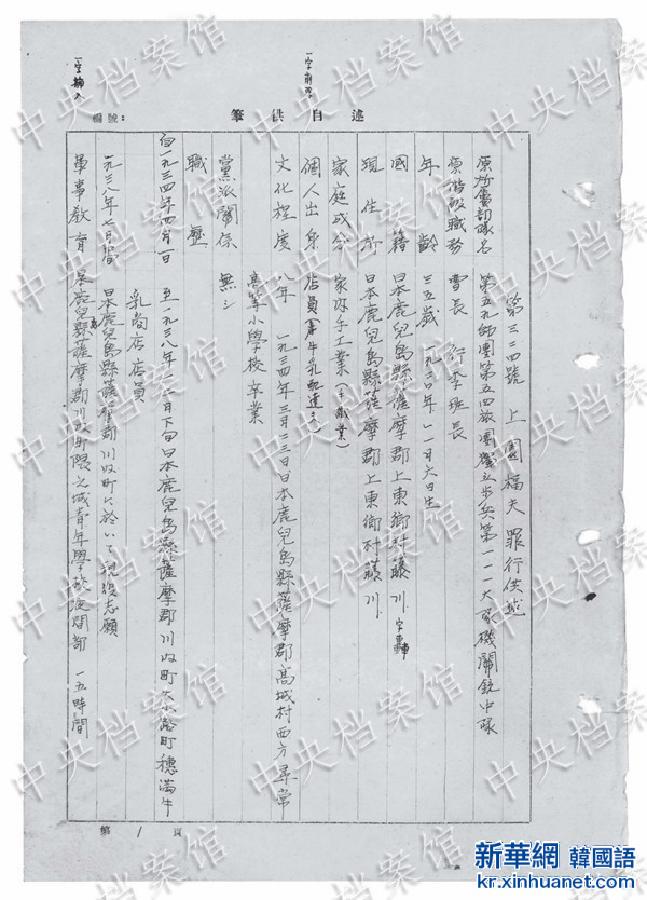 述自供筆
編號:
一字削除
一字挿入
第三二四號 上園福夫罪行供述
原所屬部隊名 第五九師團第五四旅團獨立步兵第一一一大隊機關銃中隊
原階級職務 曹長 行李班長
年齡 三五歲
國籍 日本鹿兒島縣薩摩郡上東鄉村藤川
現住所 日本鹿兒島縣薩摩郡上東鄉村藤川
家庭成分 家 手工業
個人出身 店員(牛乳配達夫)
文化程度 八年 一九三四年三月二三日日本鹿兒島縣薩摩郡高城村西方尋常
高等小學校卒業
黨派關係 無シ
職歷
自一九三四年四月一日 至一九三八年 月下旬日本鹿兒島縣薩摩郡川內町大小路町穗滿牛
乳商店店員
一九三八年七月 日本鹿兒島縣薩摩郡川內町ニ於いて現役志願
軍事教育 鹿兒島縣薩摩郡川內町隈之城青年學校夜間部 一五時間
第 1 頁
中央档案馆
新華網 韓國語
kr.xinhuanet.com